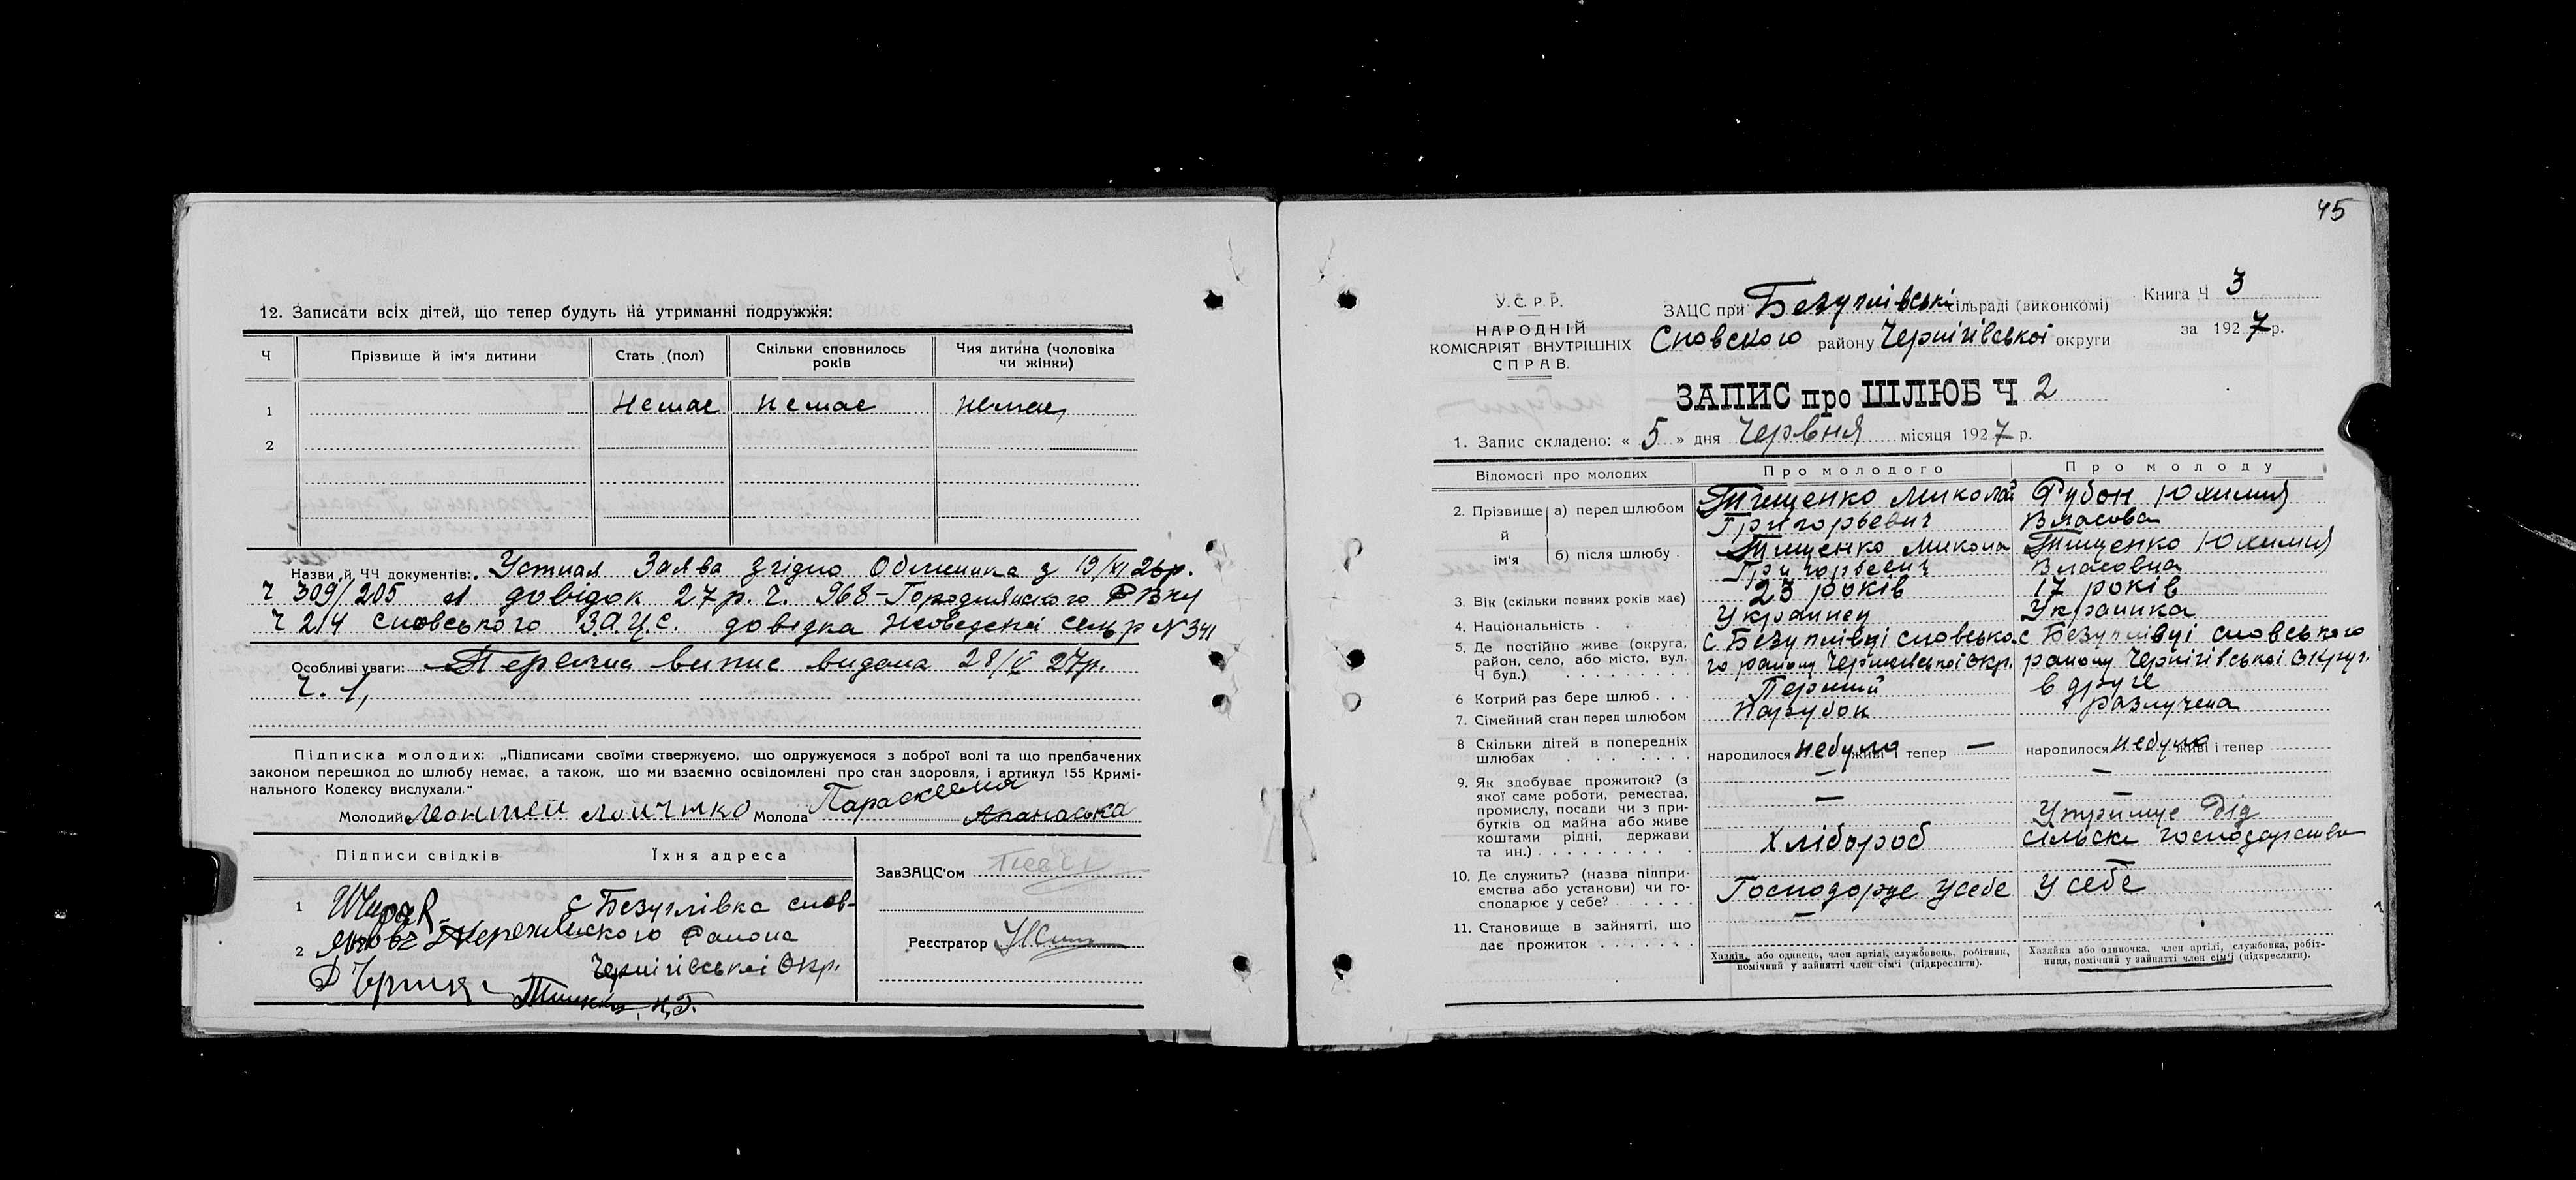 12. Записати всіх дітей, що тепер будуть на утриманні подружжя:
Ч Прізвище й ім'я дитини Стать (пол) Скільки сповнилось років Чия дитина (чоловіка чи жінки)
1 Немає Немає Немає
2
Назви й ЧЧ документів: Устная Заява згідно Обіжника з 19/XI 26р.
Ч 309/205 довідок 27р. Ч. 968-Городнянского РВКу
Ч 214 сновського З.А.Ц.С. довідка сельр N 341
Особливі уваги: випис видана 28/V 27р.
Ч. 1,
Підписка молодих: „Підписами своїми ствержуємо, що одружуємося з доброї волі та що предбачених
законом перешкод до шлюбу немає, а також, що ми взаємно освідомлені про стан здоровля, і артикул 155 Кримі-
нального Кодексу вислухали."
Молодий Молода Параскевия
Підписи свідків Їхня адреса
ЗавЗАЦС'ом
1 с Безуглівка снов-
2 ского Району
Чернігівської Окр.
Реєстратор
45
У.С.Р.Р.
НАРОДНІЙ
КОМІСАРІЯТ ВНУТРІШНІХ
СПРАВ.
ЗАЦС при Безуглівські сільраді (виконкомі)
Книга Ч 3
Сновского району Чернігівської округи
за 1927 р.
ЗАПИС про ШЛЮБ Ч 2
1. Запис складено: « 5 » дня Червня місяця 1927 р.
Відомості про молодих Про молодого Про молоду
2. Прізвище й ім'я
а) перед шлюбом Тищенко Миколай Григорьевич Рубон Юхимия Власова
б) після шлюбу Тищенко Микола Григорьевич Тищенко Юхимия Власовна
3. Вік (скільки повних років має) 23 років 17 років
4. Національність Украинец Украинка
5. Де постійно живе (округа, район, село, або місто, вул. Ч буд.) с Безуглівці сновсько- го району Чернігівської Окр. с Безуглівці сновського району Чернігівської Округ.
6 Котрий раз бере шлюб Перший в друге
7. Сімейний стан перед шлюбом Парубок разлучена
8 Скільки дітей в попередніх шлюбах народилося небуло живі і тепер — народилося небуло живі і тепер
—
9. Як здобуває прожиток? (з якої саме роботи, ремества, промислу, посади чи з при- бутків од майна або живе коштами рідні, держави та ин.) — Хлібороб — Утримує Дід сільске господарство
10. Де служить? (назва підпри- ємства або установи) чи го- сподарює у себе? Господарує Усебе — У себе
11. Становище в зайнятті, що дає прожиток
Хазяїн, або одинець, член артілі, службовець, робітник, помічний у зайнятті член сім'ї (підкреслити).
Хазяйка або одиночка, член артілі, службовка, робіт- ниця, помічний у зайнятті член сім'ї (підкреслити).